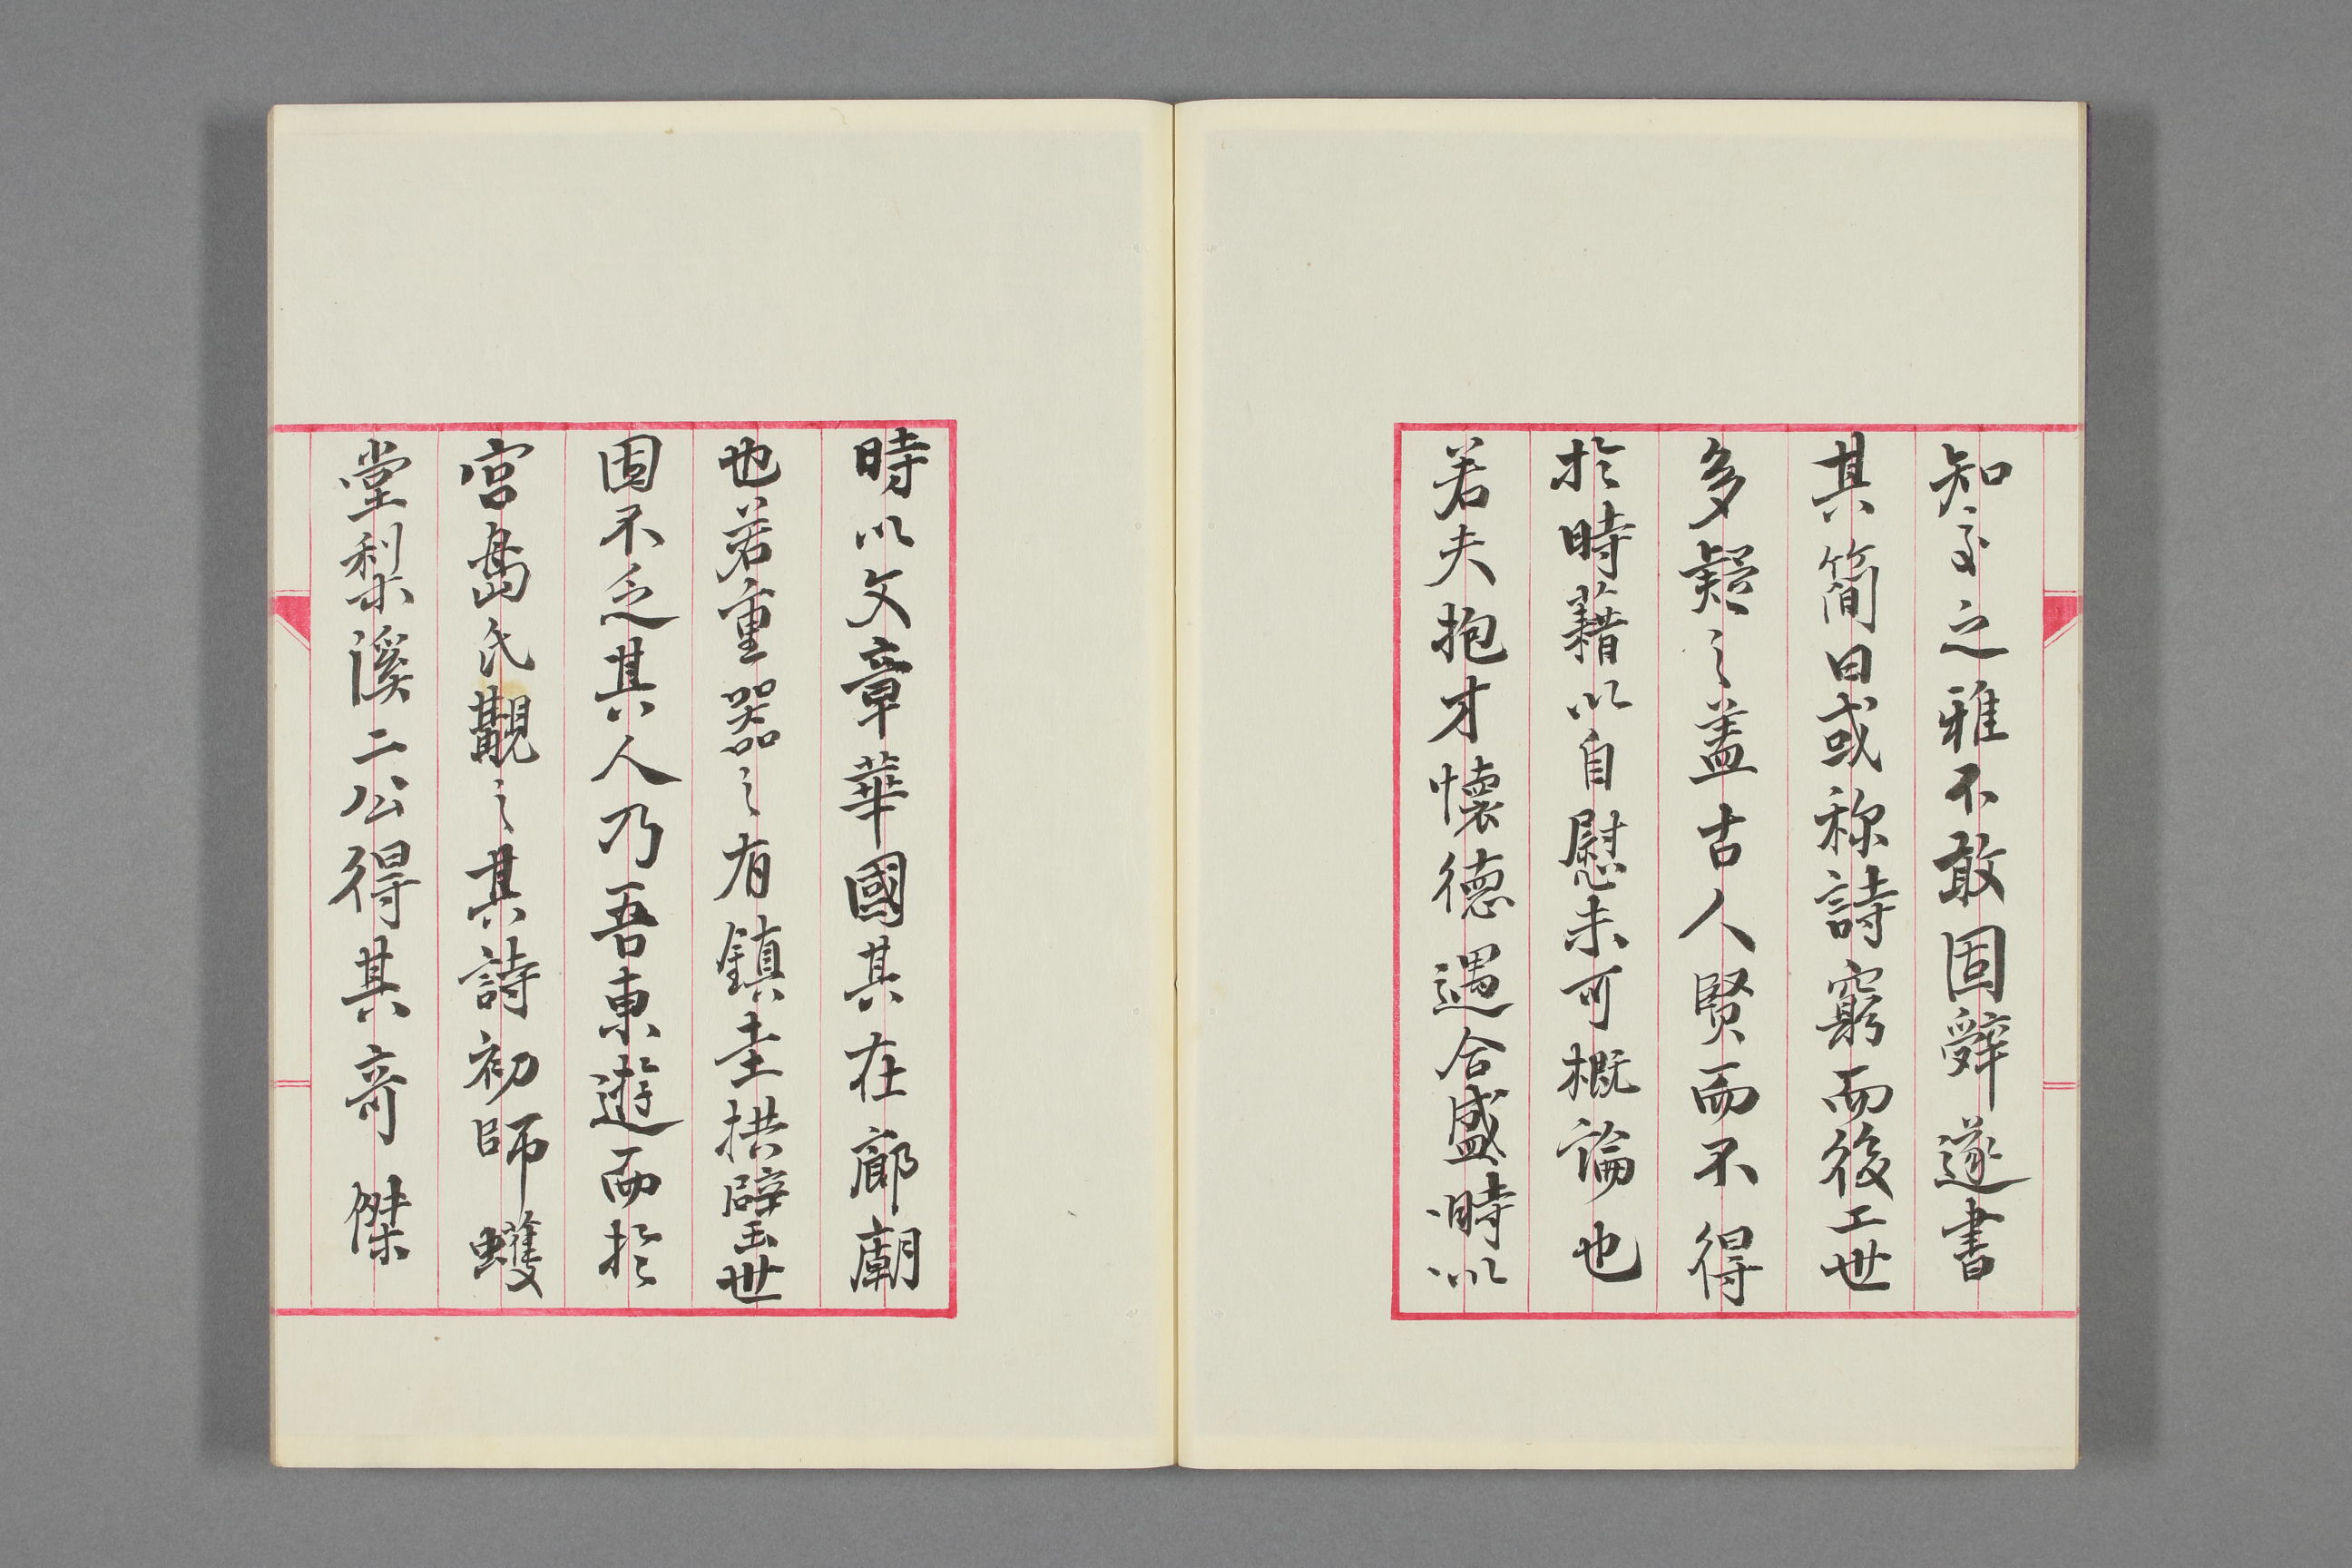 知之雅不敢固辭遂書
其簡曰或称詩窮而後工世
多疑之盖古人賢而不得
於時藉以自慰未可概論也
若夫抱才懐徳遇合盛時以
時以文章華國其在廊廟
也若重器之有鎮圭拱璧世
固不乏其人乃吾東遊而於
宮島氏觀之其詩初師蠖
堂梨溪二公得其奇傑